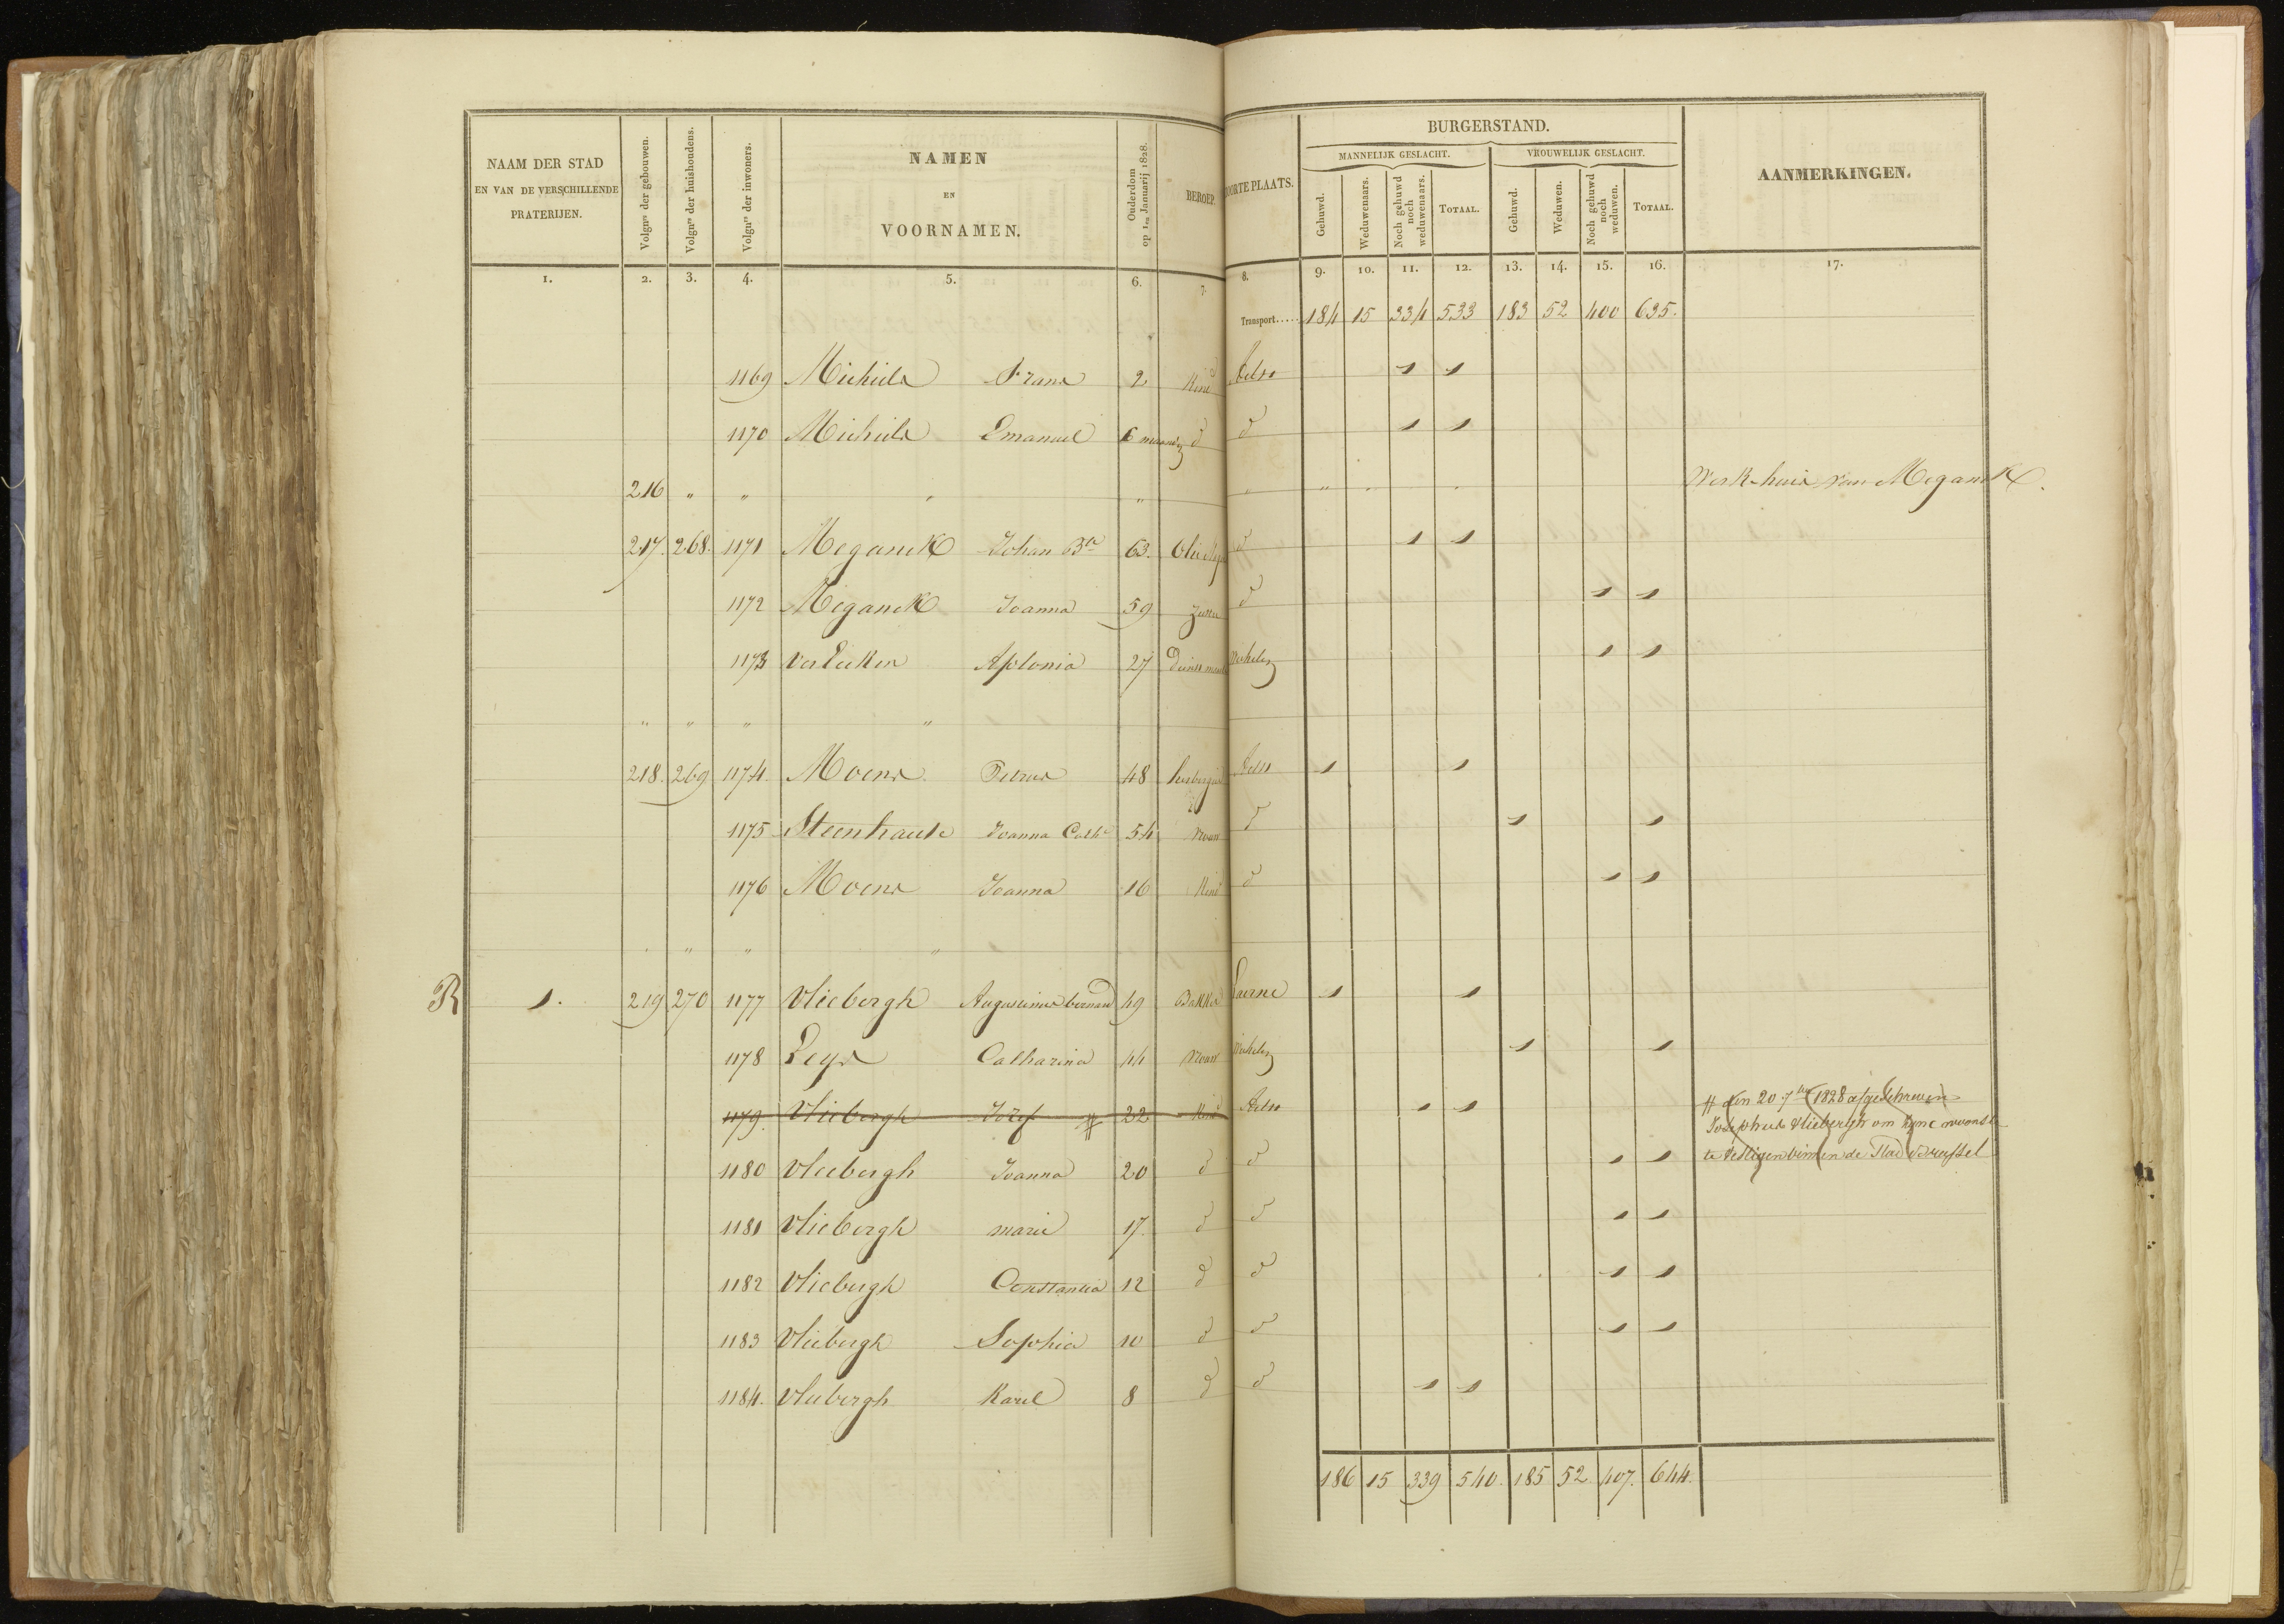 NAAM DER STAD EN VAN DE VERSCHILLENDE PRATERIJEN. | Volgnrs der gebouwen. | Volgnrs der huishoudens. | Volgnrs der inwoners. | NAMEN EN VOORNAMEN. | Ouderdom op 1en Januarij 1828. | BEROEP | BOORTE PLAATS. | BURGERSTAND. | AANMERKINGEN.
MANNELIJK GESLACHT. | VROUWELIJK GESLACHT.
Gehuwd. | Weduwenaars. | Noch gehuwd noch weduwenaars. | TOTAAL. | Gehuwd. | Weduwen. | Noch gehuwd noch weduwen. | TOTAAL.
1. | 2. | 3. | 4. | 5. | 6. | 7. | 8. | 9. | 10. | 11. | 12. | 13. | 14. | 15. | 16. | 17.
Transport..... 184 | 15 | 334 | 533 | 183 | 52 | 400 | 635.
1169 Michiels Frans 2 Kind Aelst 1 1
1170 Michiels Emanuel 6 maanden d d 1 1
216 " " " " " " " " Werk-huis van Meganck.
217. 268. 1171 Meganck Johan Bta 63. d 1 1
1172 Meganck Joanna 59 Zuster d 1 1
1173 VerLeeken Aplonia 27 1 1
" " " "
218. 269 1174 Moens Petrus 48 herbergier Aelst 1 1
1175 Steenhaut Joanna Cath 54 vrouw d 1 1
1176 Moens Joanna 16 Kind d 1 1
" " " "
R 1. 219 270 1177 Vliebergh Augustinus bernard 49 Bakker Laerne 1 1
1178 Leys Catharina 44 vrouw 1 1
1179. Vliebergh Jozef # 22 Kind Aelst 1 1 # den 20 7ber 1828 afgeschreven
Josephus Vliebergh om zyne woonst
te vestigen binnen de Stad Brussel
1180 Vliebergh Joanna 20 d d 1 1
1181 Vliebergh marie 17. d d 1 1
1182 Vliebergh Constantia 12 d d 1 1
1183 Vliebergh Sophia 10 d d 1 1
1184. Vliebergh Karel 8 d d 1 1
186 | 15 | 339 | 540. | 185 | 52. | 407. | 644.